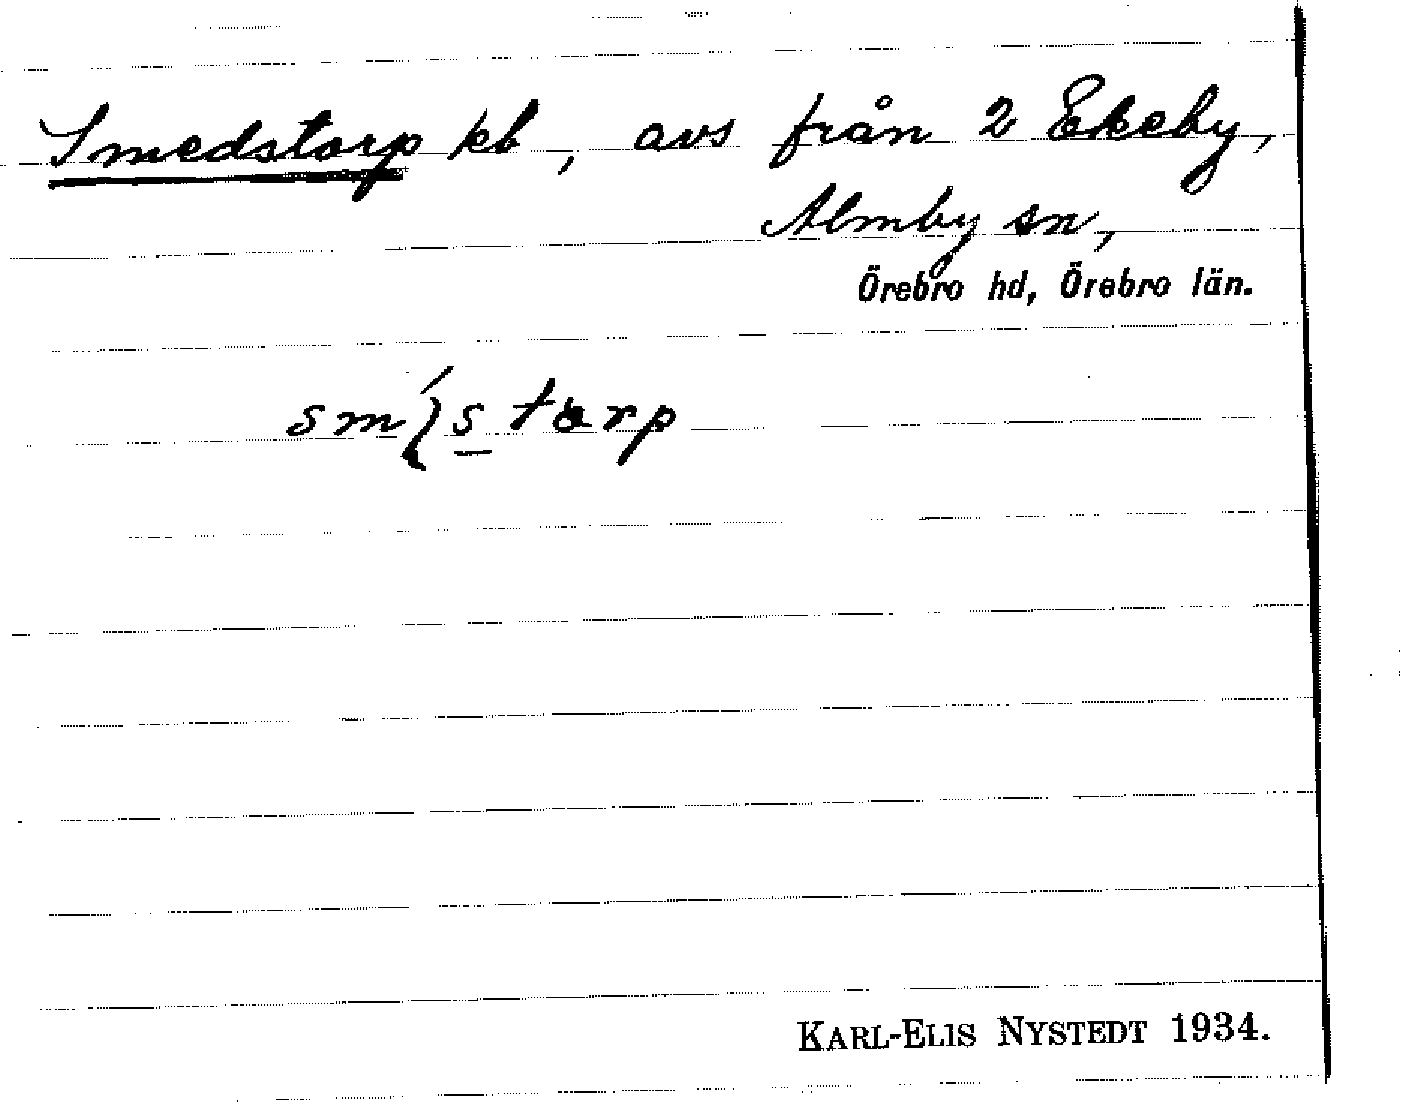 Smedstorp kb, avs från 2 Ekeby,
Almby sn,
Örebro hd, Örebro län.
KARL-ELIS NYSTEDT 1934.